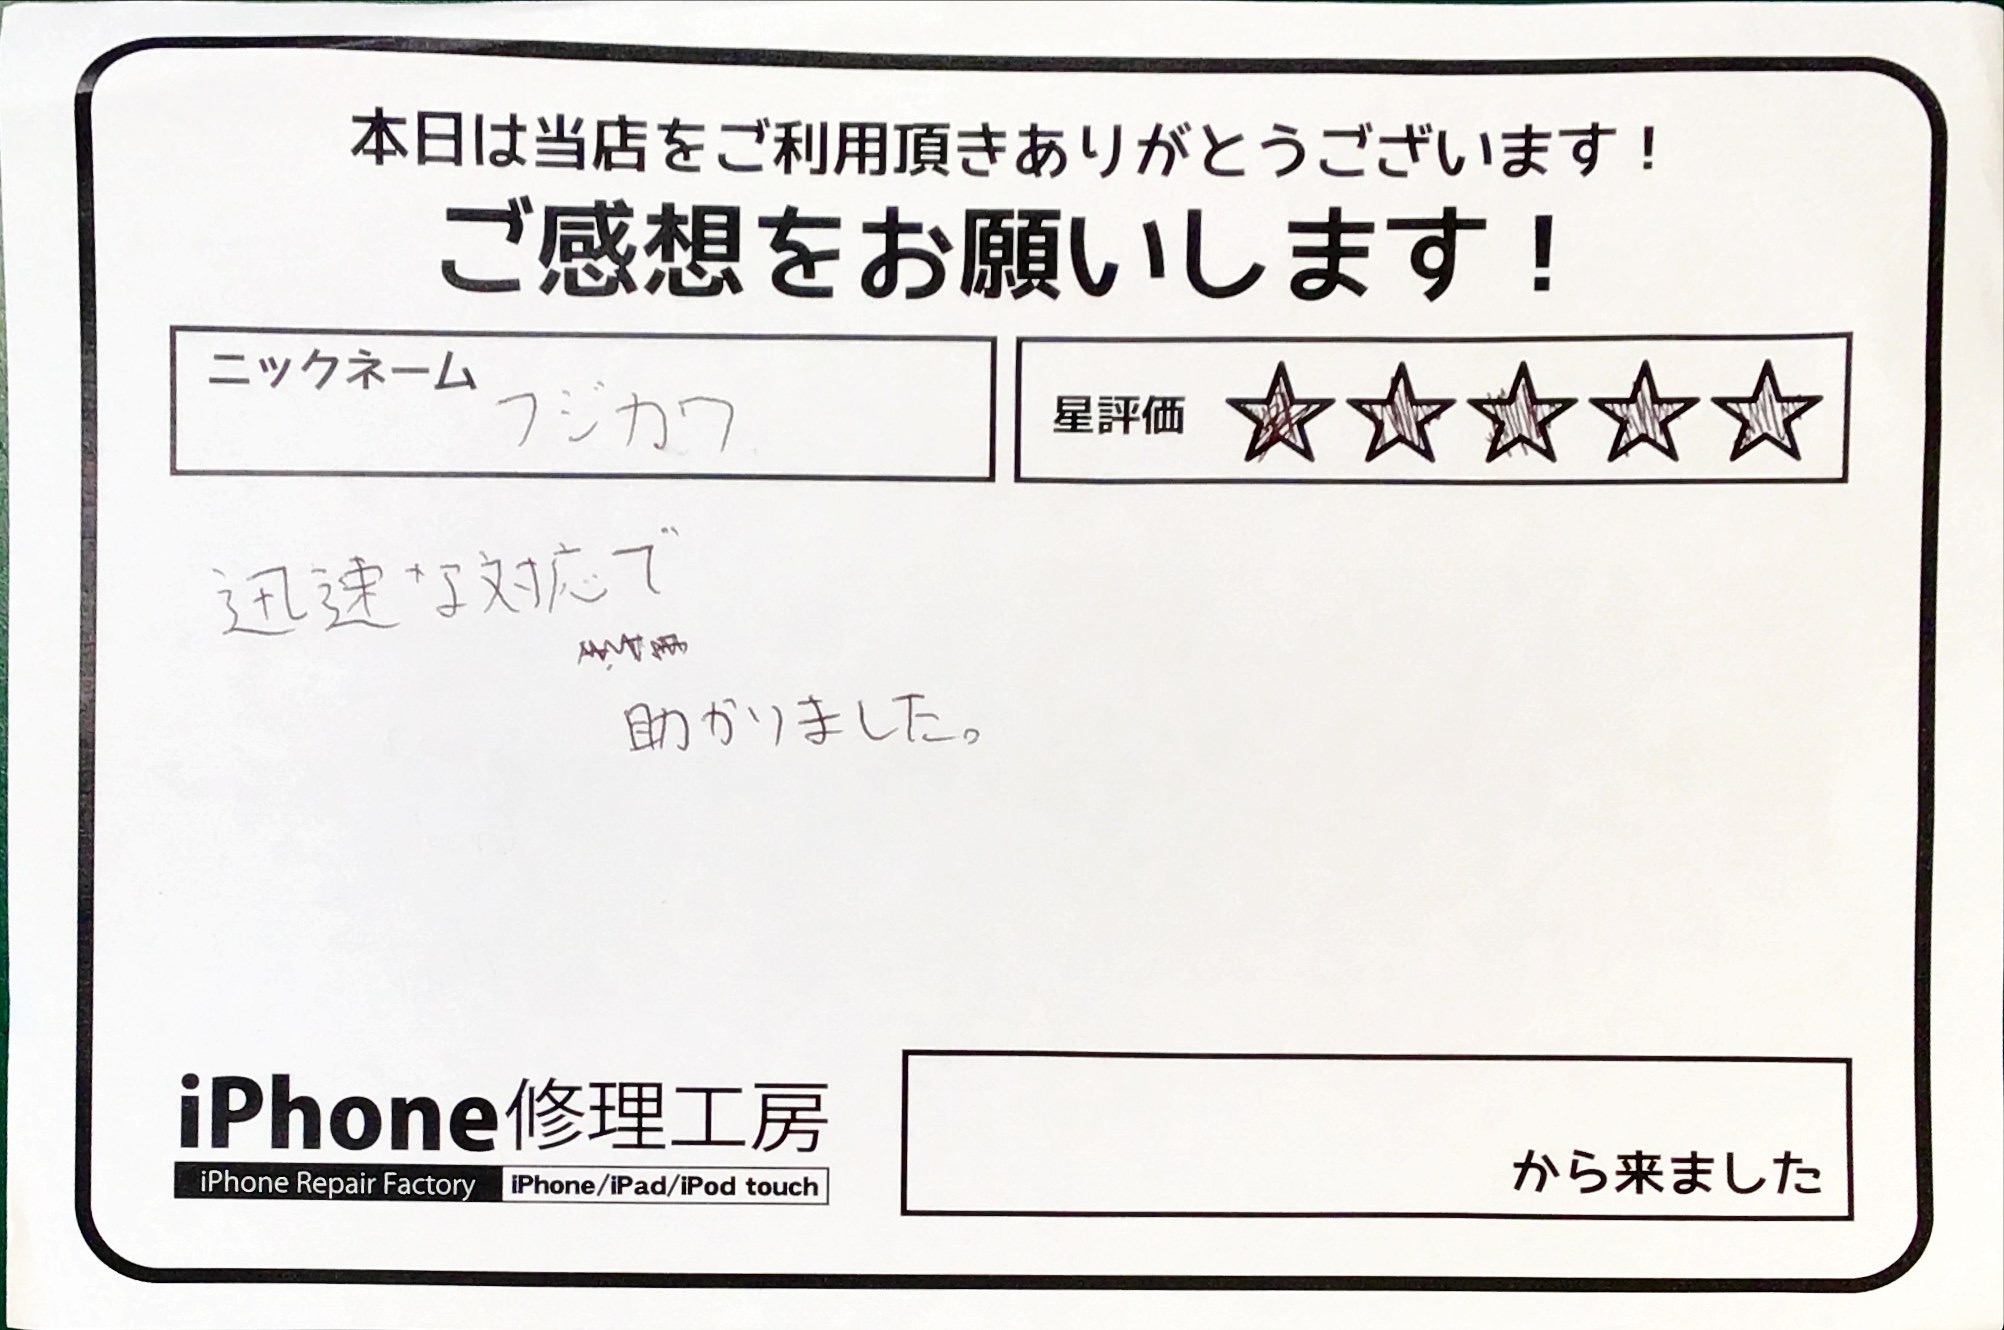 本日は当店をご利用頂きありがとうございます！
ご感想をお願いします！
ニックネーム フジカワ
星評価 ☆☆☆☆☆
迅速な対応で
助かりました。
iPhone修理工房
iPhone Repair Factory iPhone/iPad/iPod touch
から来ました